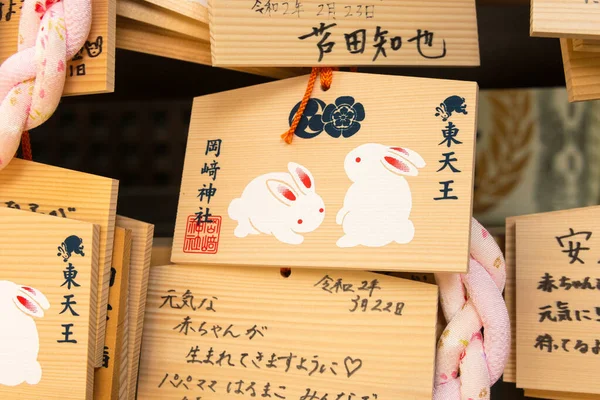 令和2年 2月23日
芦田知也
岡﨑神社
東天王
東天王
令和2年
3月22日
元気な
赤ちゃんが
生まれてきますように♡
パパママ はるまこ みんなで
安
赤ちゃ
元気に
待ってるよ